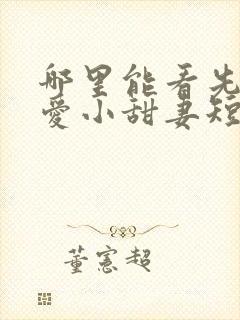 哪里能看先
爱小甜妻短
董宪超